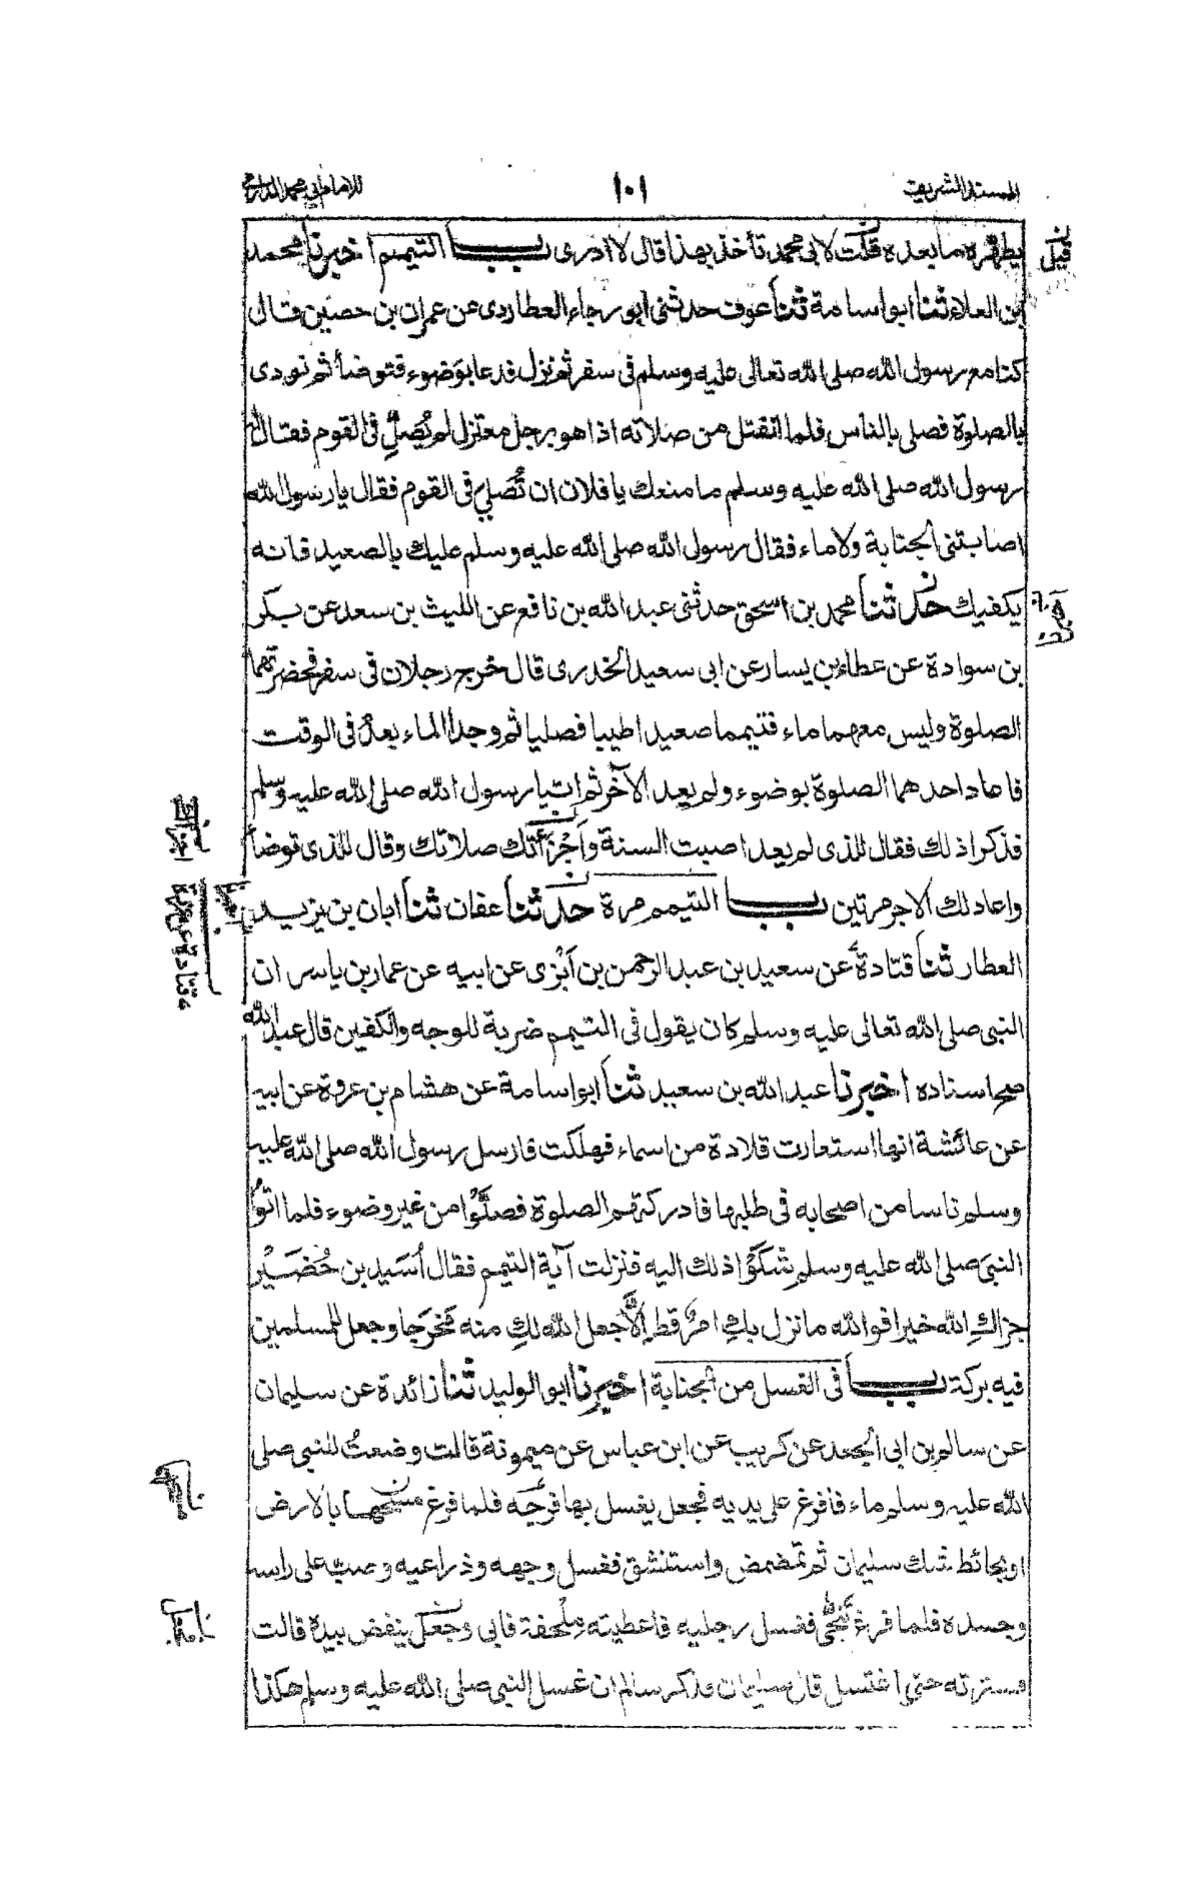 المسند الشريف ١٠١ للامام ابي محمد الدارمي
يطهره ما بعده قلت لابي محمد تأخذ بهذا قال لا ادرى باب التيمم اخبرنا محمد
بن العلاء ثنا ابو اسامة ثنا عوف حدثنى ابو رجاء العطاردى عن عمران بن حصين قال
كنا مع رسول الله صلى الله تعالى عليه وسلم فى سفر ثم نزل فدعا بوَضوء فتوضأ ثم نودى
بالصلوة فصلى بالناس فلما انفتل من صلاته اذا هو برجل معتزل لم يُصَلِّ فى القوم فقال له
رسول الله صلى الله عليه وسلم ما منعك يا فلان ان تُصَلِّي فى القوم فقال يا رسول الله
اصابتنى الجنابة ولا ماء فقال رسول الله صلى الله عليه وسلم عليك بالصعيد فانه
يكفيك حدثنا محمد بن اسحق حدثنى عبد الله بن نافع عن الليث بن سعد عن بكر
بن سوادة عن عطاء بن يسار عن ابى سعيد الخدرى قال خرج رجلان فى سفر فحضرتهما
الصلوة وليس معهما ماء فتيمما صعيدا طيبا فصليا ثم وجدا الماء بعدُ فى الوقت
فاعاد احدهما الصلوة بوضوء ولم يعد الآخر ثم اتيا رسول الله صلى الله عليه وسلم
فذكرا ذلك فقال للذى لم يعد اصبت السنة وأَجْزَأَتْك صلاتك وقال للذى توضأ
واعاد لك الاجر مرتين باب التيمم مرة حدثنا عفان ثنا ابان بن يزيد
العطار ثنا قتادة عن سعيد بن عبد الرحمن بن اَبْزى عن ابيه عن عمار بن ياسر ان
النبى صلى الله تعالى عليه وسلم كان يقول فى التيمم ضربة للوجه والكفين قال عبد الله
صح اسناده اخبرنا عبد الله بن سعيد ثنا ابو اسامة عن هشام بن عروة عن ابيه
عن عائشة انها استعارت قلادة من اسماء فهلكت فارسل رسول الله صلى الله عليه
وسلم ناسا من اصحابه فى طلبها فادركتهم الصلوة فصلَّوْا من غير وضوء فلما اتَوُا
النبى صلى الله عليه وسلم شكَوْا ذلك اليه فنزلت آية التيمم فقال اُسَيد بن حُضَيْر
جزاكِ الله خيرا فوالله ما نزل بكِ امرٌ قط اِلَّا جعل الله لكِ منه مَخرَجا وجعل للمسلمين
فيه بركة باب فى الغسل من الجنابة اخبرنا ابو الوليد ثنا زائدة عن سليمان
عن سالم بن ابى الجعد عن كريب عن ابن عباس عن ميمونة قالت وضعتُ للنبى صلى
الله عليه وسلم ماء فافرغ على يديه فجعل يغسل بها فرجَه فلما فرغ مسحها بالارض
او بحائط شك سليمان ثم تمضمض واستنشق فغسل وجهه وذراعيه وصب على راسه
وجسده فلما فرغ تَنَحّٰى فغسل رجليه فاعطيته مِلْحَفة فابى وجعل ينفض بيده قالت
فسترته حتى اغتسل قال سليمان فذكر سالم ان غسل النبى صلى الله عليه وسلم هكذا
قيل